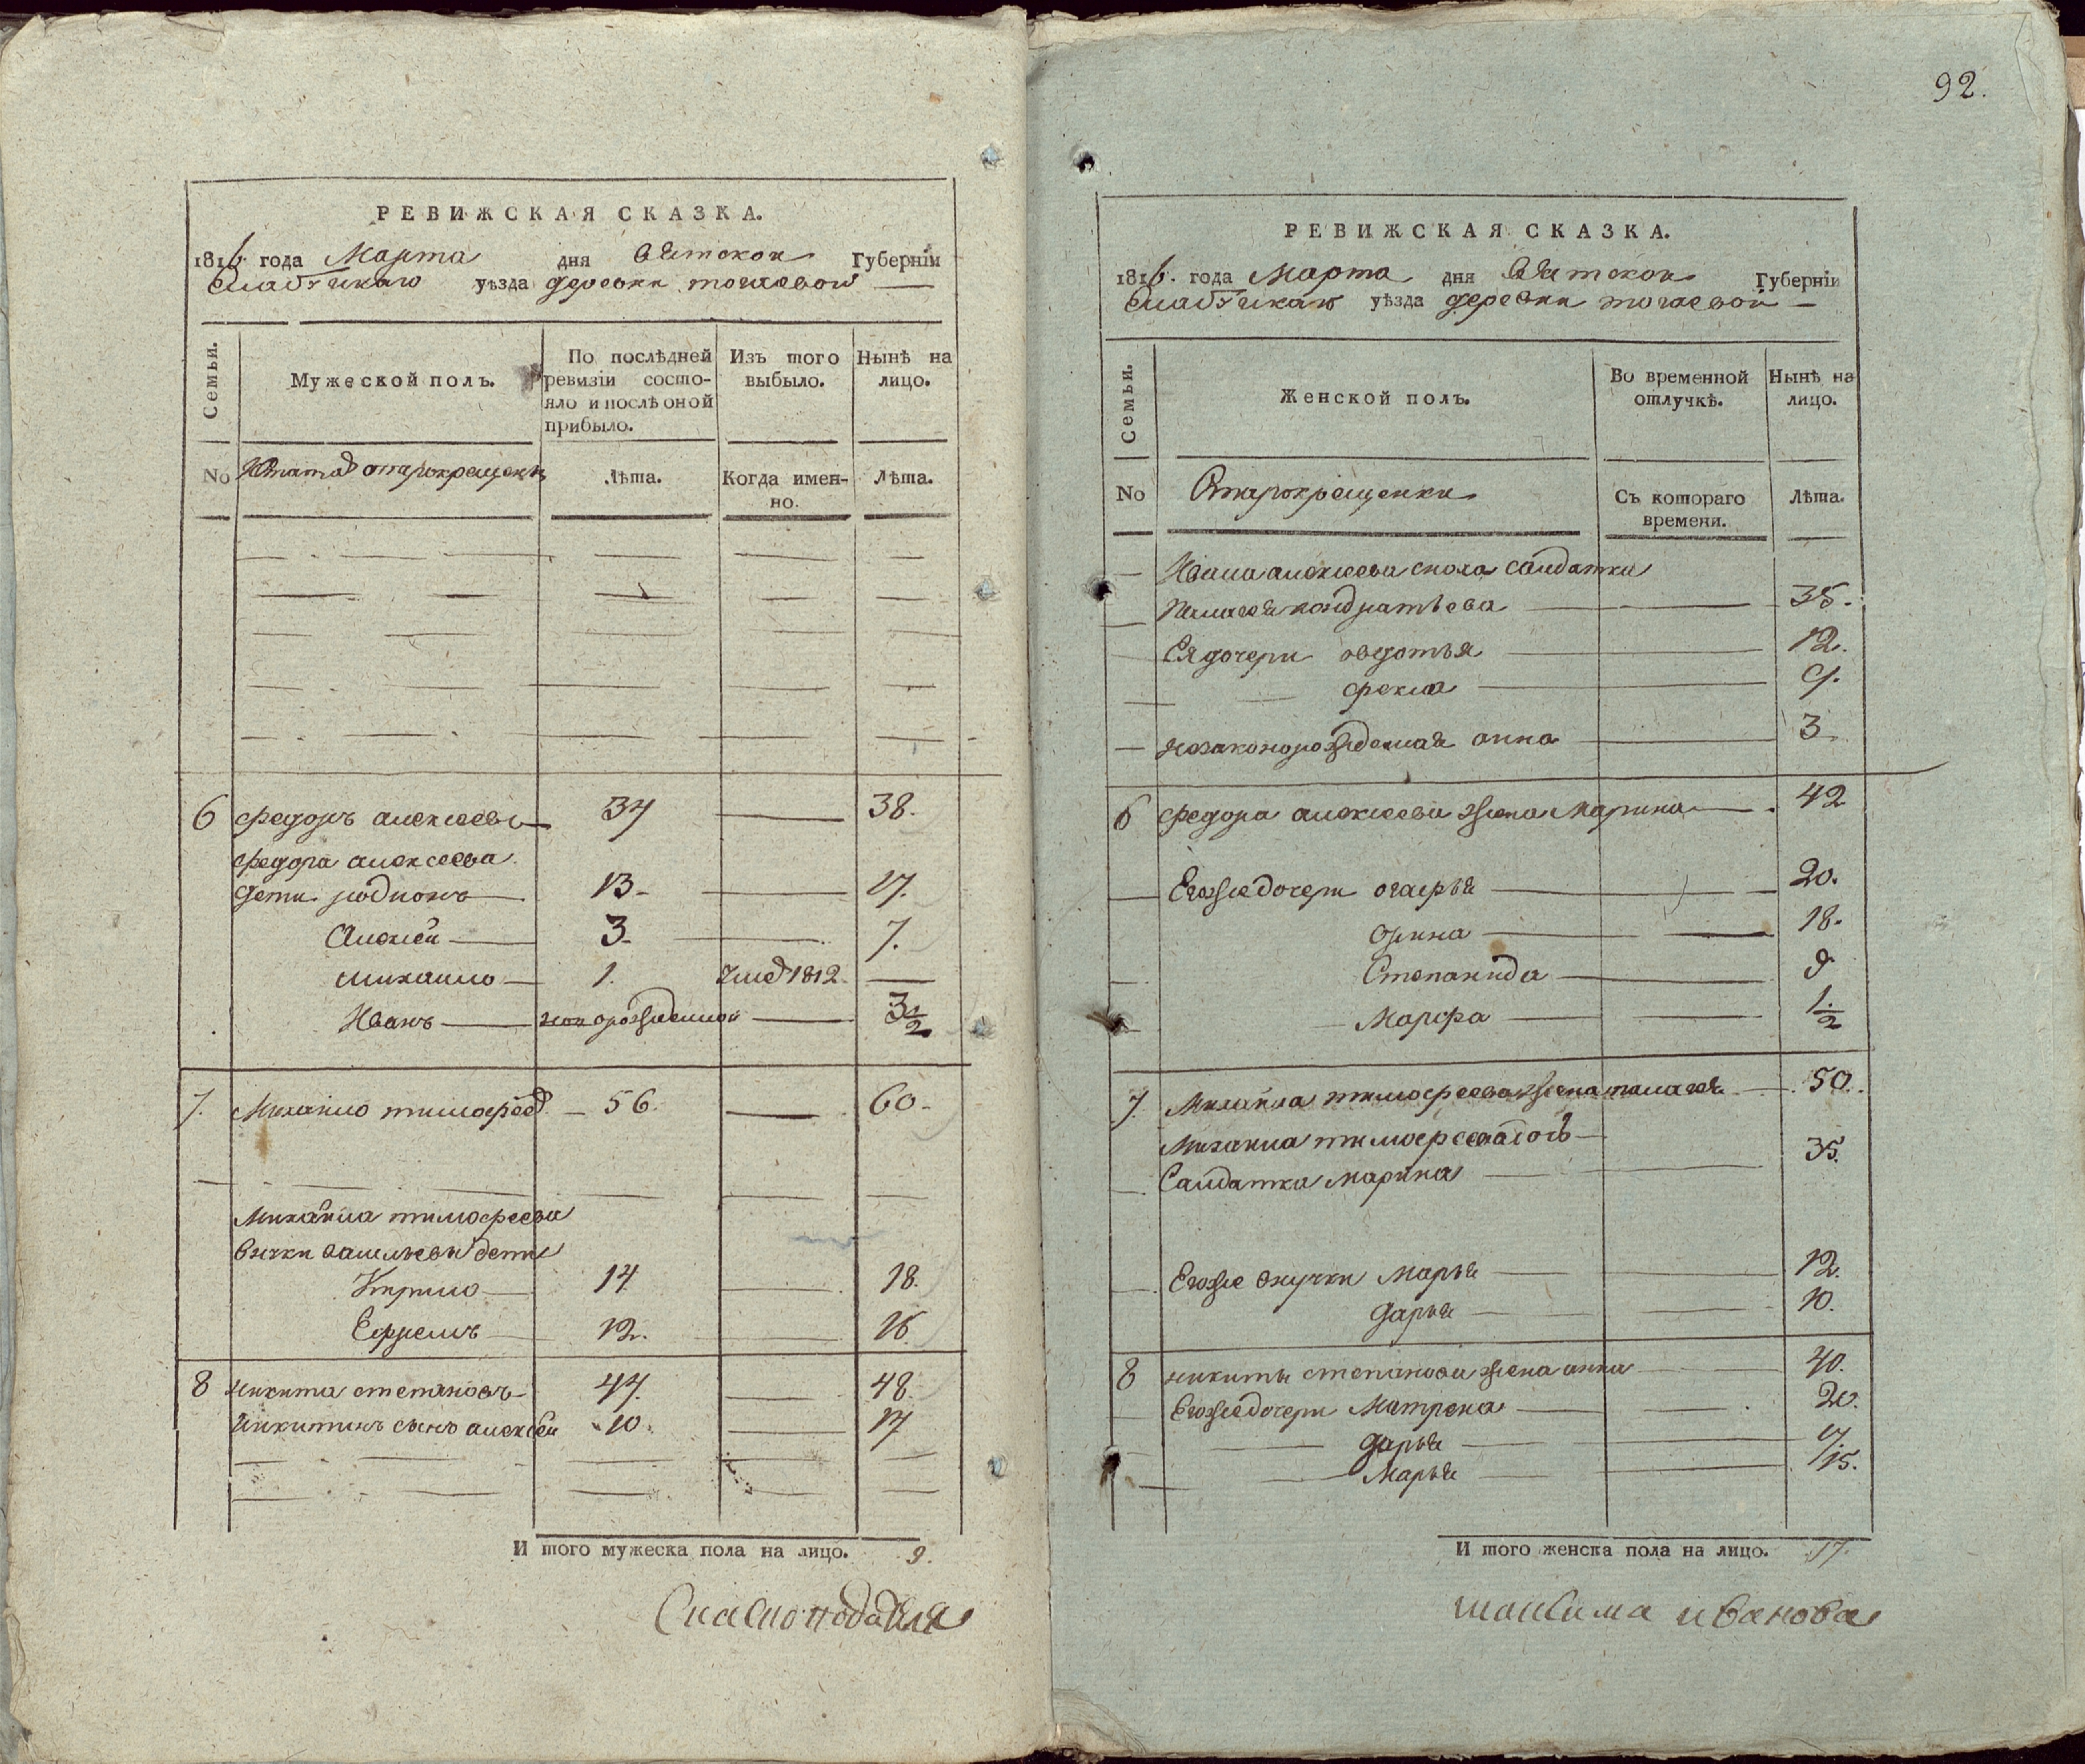 РЕВИЖСКАЯ СКАЗКА.
1816. года Марта дня Вятской Губерніи
Елабужскаго уѣзда деревни
Семьи. Мужеской полъ. По послѣдней ревизіи состояло и послѣ оной прибыло. Изъ того выбыло. Нынѣ на лицо.
No старокрещены Лѣта. Когда именно. Лѣта.
6 Федоръ алексеевъ 34 38.
Федора алексеева
дети родионъ 13 17.
Алексей 3. 7.
михаило 1. 1812.
Иванъ новорожденной 3 1/2
7. михаило тимофеев 56. 60.
Михаила тимофеева
внучки дети
Кирило 14 18.
Ефремъ 12. 16
8 никита степановъ 44. 48.
никитинъ сынъ алексей 10. 14
И того мужеска пола на лицо. 9.
92.
РЕВИЖСКАЯ СКАЗКА.
1816. года Марта дня Вятской Губерніи
Елабужскаго уѣзда деревни
Семьи. Женской полъ. Во временной отлучкѣ. Нынѣ на лицо.
No Старокрещенки Съ котораго времени. Лѣта.
Ивана алексеева сноха салдатка
пелагея кондратьева 35.
Ея дочери овдотья 12.
фекла 9.
незаконорожденная анна 3
6 Федора алексеева жена Марина 42
Егоже дочери огафья 20.
орина 18.
Степанида 9
Марфа 1 1/2
7. Михаила тимофеева жена пелагея 50.
Михаила тимофеева
Салдатка марина 35.
Егоже внучки Марья 12.
дарья 10.
8 никиты степанова жена анна 40.
Егоже дочери Матрена 20.
дарья
Марья 15.
И того женска пола на лицо. 17.
иванова